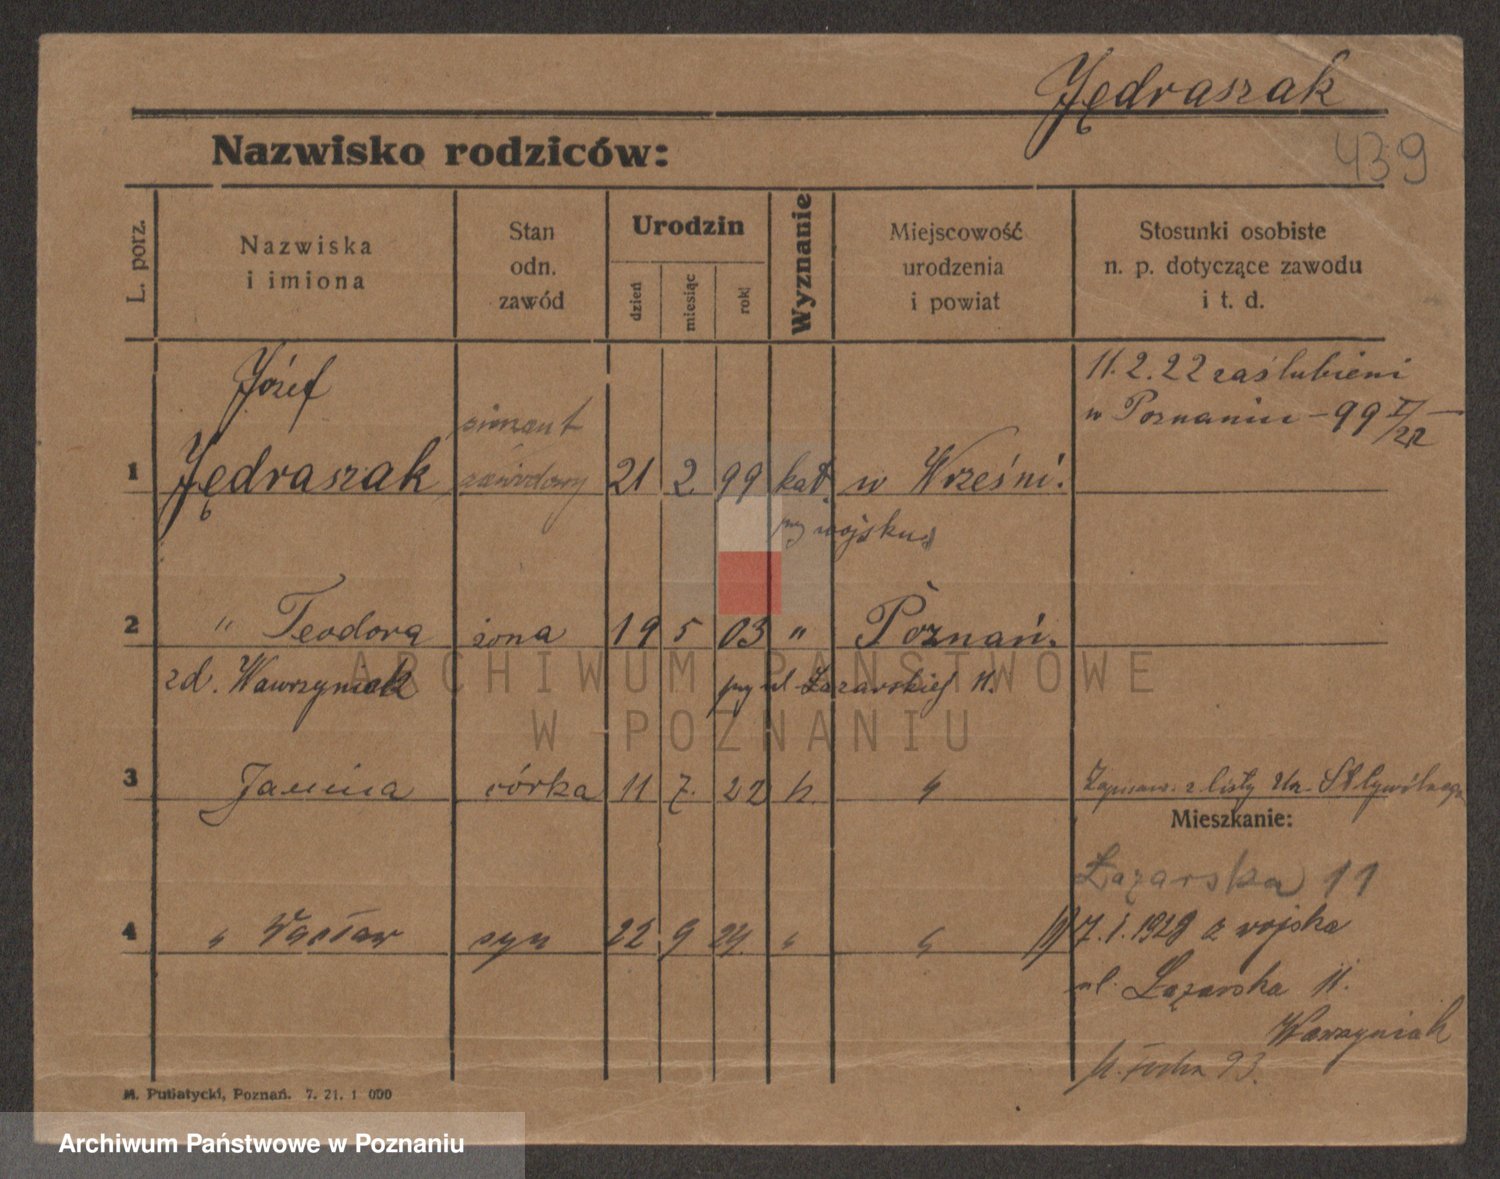 Jędraszak
439
Nazwisko rodziców:
L. porz.
Nazwiska
i imiona
Stan
odn.
zawód
Urodzin
dzień
miesiąc
rok
Wyznanie
Miejscowość
urodzenia
i powiat
Stosunki osobiste
n. p. dotyczące zawodu
i t. d.
Józef
11.2.22 zaślubieni
w Poznaniu - 99 I/22
1 Jędraszak zawodowy 21 2. 99 kat. w Wrześni.
przy wojsku
2 " Teodora żona 19 5 03 " Poznań.
zd. Wawrzyniak przy ul Łazarskiej 11.
3 Janina córka 11 7. 22 " "
z listy
Mieszkanie:
Łazarska 11
4 " Wacław syn 22 9 24. " "
7.1.1929 z wojska
ul. Łazarska 11.
Wawrzyniak
Focha 93.
M. Putiatycki, Poznań. 7. 21. 1 000
ARCHIWUM PAŃSTWOWE
W POZNANIU
Archiwum Państwowe w Poznaniu